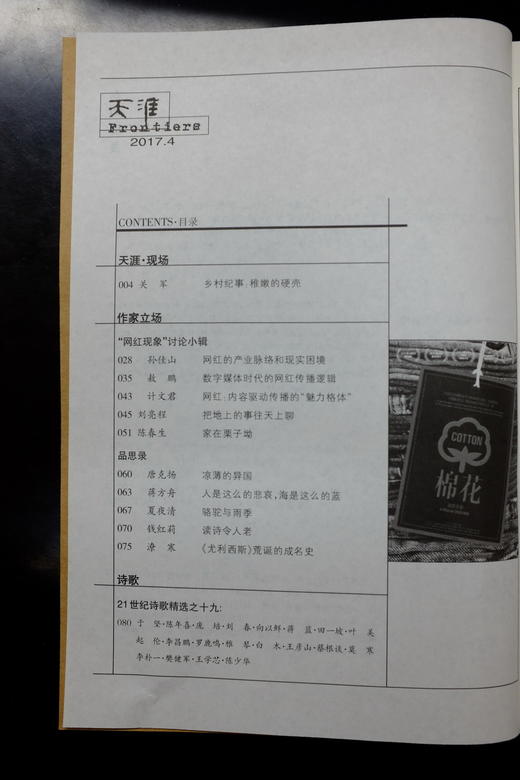 天涯
Frontiers
2017.4
CONTENTS·目录
天涯·现场
004 关 军 乡村纪事:稚嫩的硬壳
作家立场
“网红现象”讨论小辑
028 孙佳山 网红的产业脉络和现实困境
035 敖 鹏 数字媒体时代的网红传播逻辑
043 计文君 网红:内容驱动传播的“魅力格体”
045 刘亮程 把地上的事往天上聊
051 陈春生 家在栗子坳
品思录
060 唐克扬 凉薄的异国
063 蒋方舟 人是这么的悲哀,海是这么的蓝
067 夏夜清 骆驼与雨季
070 钱红莉 读诗令人老
075 潦 寒 《尤利西斯》荒诞的成名史
诗歌
21世纪诗歌精选之十九:
080 于 坚·陈年喜·庞 培·刘 春·向以鲜·蒋 蓝·田一坡·叶 美
起 伦·李昌鹏·罗鹿鸣·稚 琴·白 木·王彦山·蔡根谈·莫 寒
李朴一·樊健军·王学芯·陈少华
COTTON
棉花